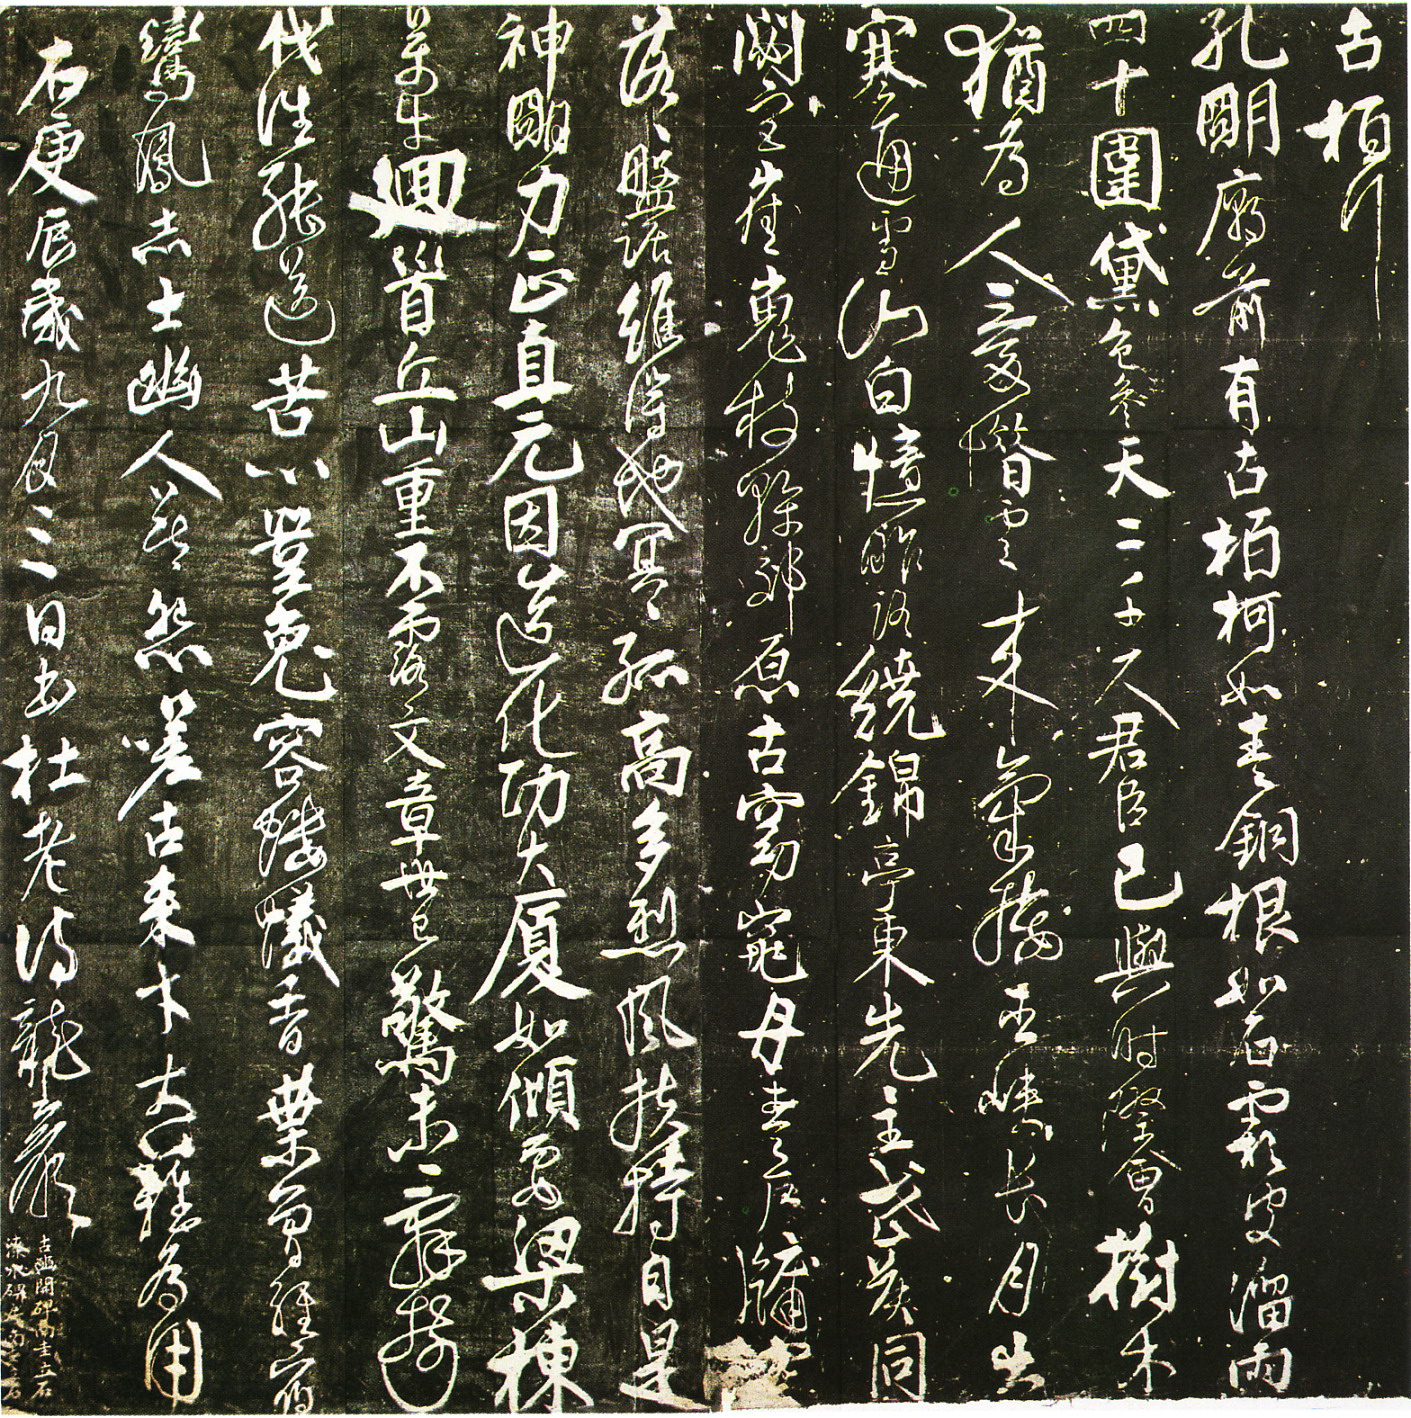 古柏行
孔明廟前有古柏柯如青銅根如石霜皮溜雨
四十圍黛色參天二千尺君臣已與時際會樹木
猶為人愛惜雲來氣接巫峽長月出
寒通雪山白憶昨路繞錦亭東先主武侯同
閟宮崔嵬枝幹郊原古窈窕丹青戶牖空
落〻盤踞雖得地冥〻孤高多烈風扶持自是
神明力正直元因造化功大廈如傾要梁棟
萬牛迴首丘山重不露文章世已驚未辭剪
伐誰能送苦心豈免容螻蟻香葉曾經宿
鸞鳳志士幽人莫怨嗟古來才大難為用
右庚辰歲九月三日書杜老詩龍巖
古豳開碑高圭立石